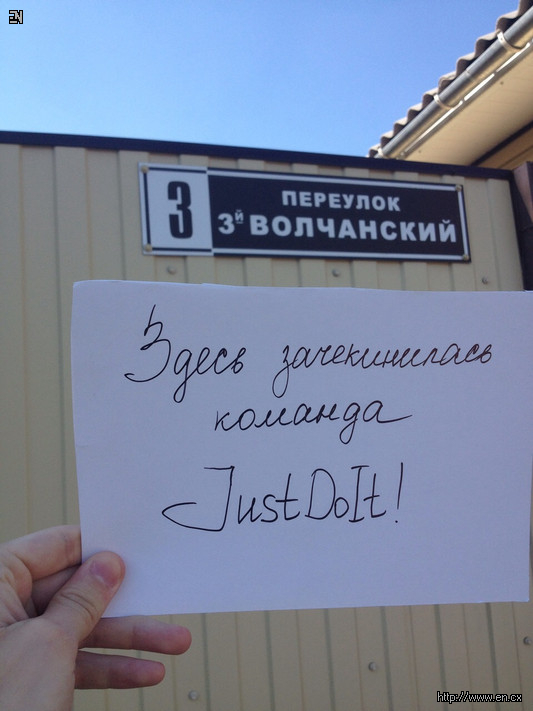 EN
3
ПЕРЕУЛОК
3й ВОЛЧАНСКИЙ
Здесь зачекинилась
команда
JustDoIt!
http://www.en.cx